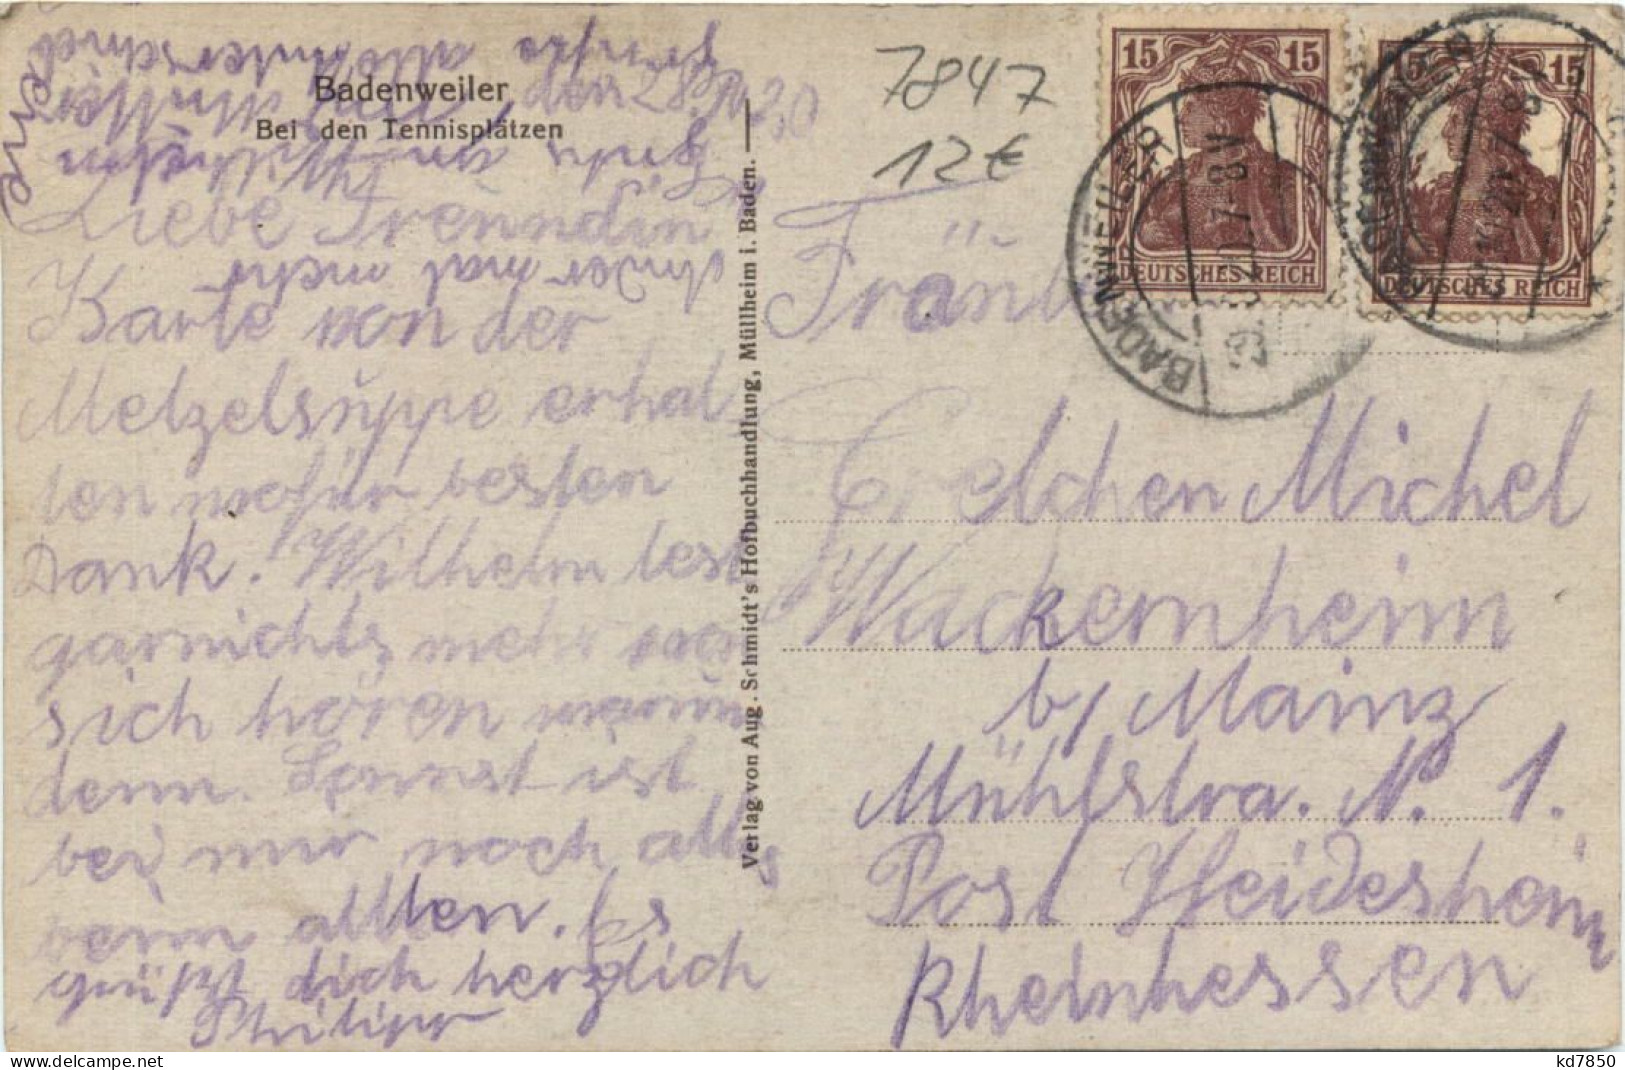 Badenweiler
Bei den Tennisplätzen
den 28.
20
Liebe Freundin
Karte von der
Metzelsuppe erhal
ten wofür besten
Dank. Wilhelm lest
garnichts mehr von
sich hören warum
denn. Sonst ist
bei mir noch alles
beim allten. Es
grüßt dich herzlich
Philipp
ander mal mehr
Gruß an Wilhelm
Mutter
Verlag von Aug. Schmidt's Hofbuchhandlung, Müllheim i. Baden.
7847
12€
15 15
DEUTSCHES REICH
15 15
DEUTSCHES REICH
BADENWEILER
7-8V
BADENWEILER
Fräul
Gretchen Michel
Wackernheim
b/ Mainz
Mühlstra. N. 1.
Post Heidesheim
Rheinhessen
www.delcampe.net
kd7850